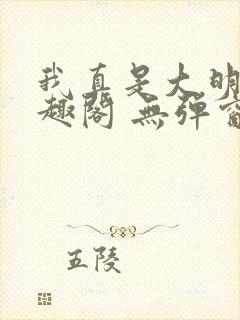 我真是大明
趣閣 無彈窗
五陵